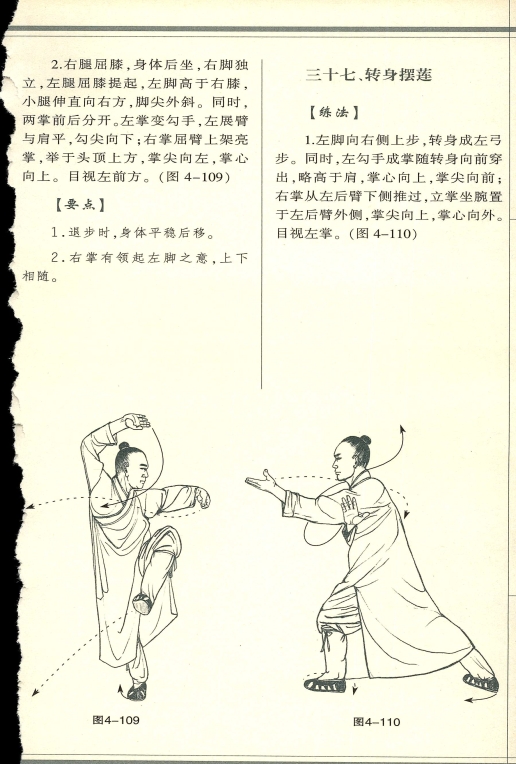 2.右腿屈膝,身体后坐,右脚独
立,左腿屈膝提起,左脚高于右膝,
小腿伸直向右方,脚尖外斜。同时,
两掌前后分开。左掌变勾手,左展臂
与肩平,勾尖向下;右掌屈臂上架亮
掌,举于头顶上方,掌尖向左,掌心
向上。目视左前方。(图4-109)
【要点】
1.退步时,身体平稳后移。
2.右掌有领起左脚之意,上下
相随。
三十七、转身摆莲
【练法】
1.左脚向右侧上步,转身成左弓
步。同时,左勾手成掌随转身向前穿
出,略高于肩,掌心向上,掌尖向前;
右掌从左后臂下侧推过,立掌坐腕置
于左后臂外侧,掌尖向上,掌心向外。
目视左掌。(图4-110)
图4-109
图4-110